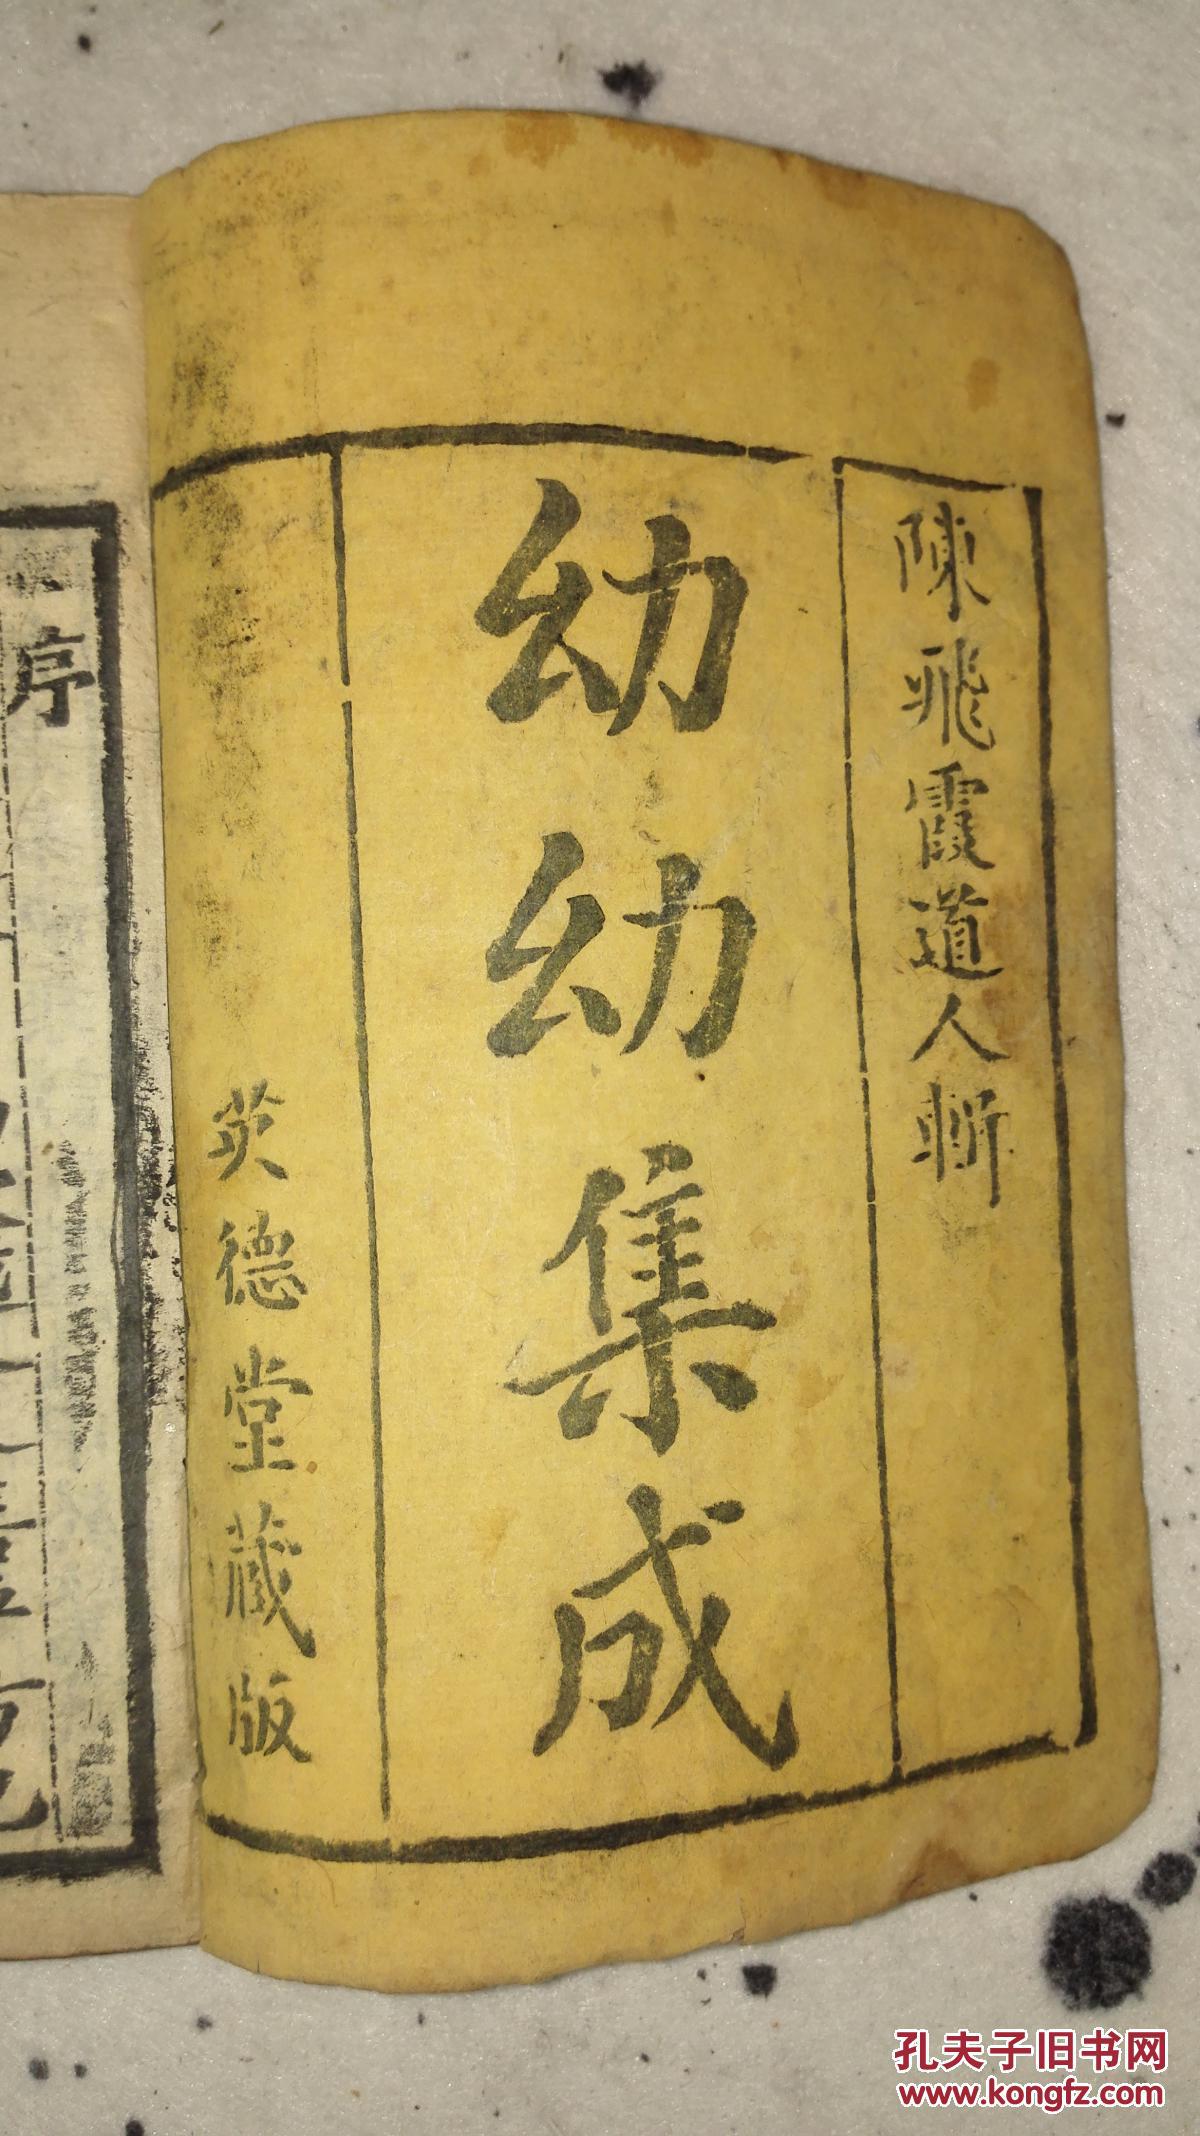 陳飛霞道人輯
幼幼集成
英德堂藏版
序
孔夫子旧书网
www.kongfz.com